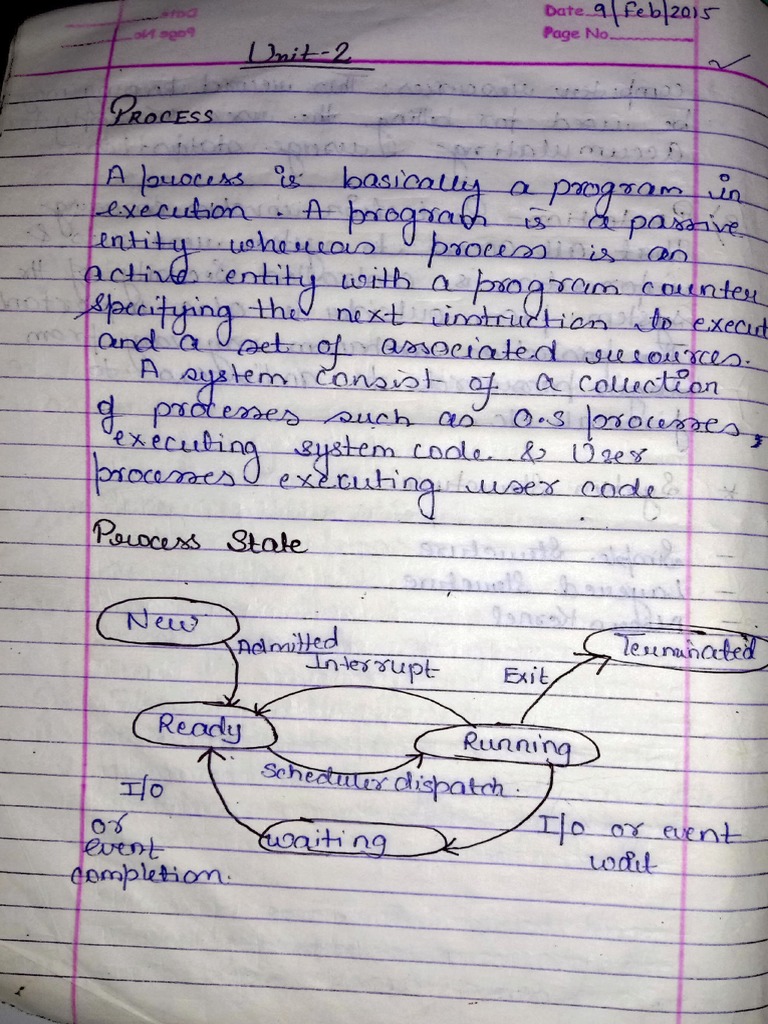 Date 9/Feb/2015
Page No.
Unit-2
PROCESS
A process is basically a program in
execution. A program is a passive
entity whereas process is an
active entity with a program counter
specifying the next instruction to execut
and a set of associated resources.
A system consist of a collection
of processes such as O.S processes,
executing system code & User
processes executing user code
Process State
New
Admitted
Interrupt
Exit
Terminated
Ready
Running
Scheduler dispatch.
I/O
or
event
completion.
waiting
I/O or event
wait